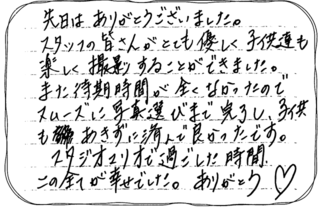 先日は ありがとうございました。
スタッフの皆さんがとても優しく子供達も
楽しく撮影することができました。
また待期時間が全くなかったので
スムーズに写真選びまで完了し、子供
もあきずに済んで良かったです。
スタジオマリオで過ごした時間
この全てが幸せでした。ありがとう♡